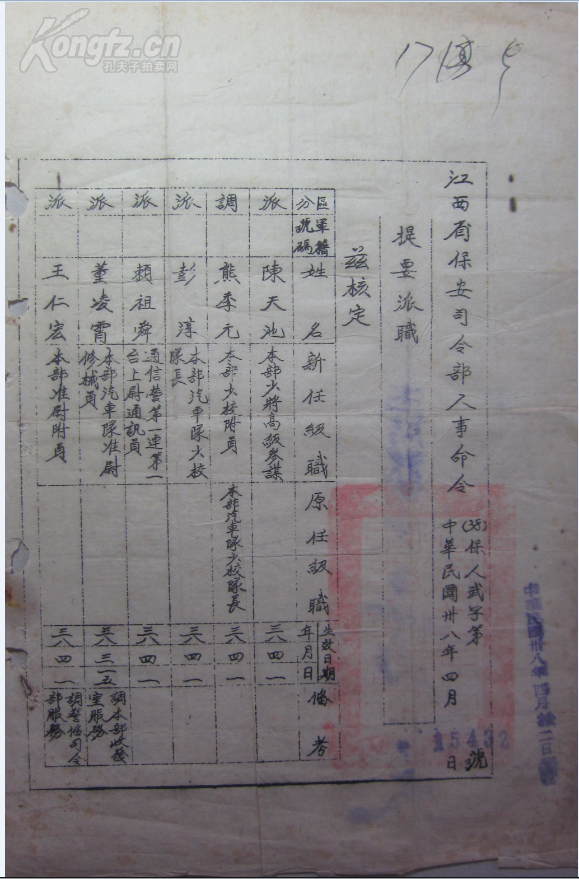 Kongfz.cn
孔夫子拍卖网
江西省保安司令部人事命令
(38)保人貳字第15432號
中華民國卅八年四月 日
提要派職
茲核定
區分 軍籍號碼 姓名 新任級職 原任級職 生效日期年月日 備考
派 陳天池 本部少將高級參謀 三八 四 一
調 熊季元 本部少校附員 本部汽車隊少校隊長 三八 四 一
派 彭淳 本部汽車隊少校隊長 三八 四 一
派 賴祖舜 通信營第一連第一台上尉通訊員 三八 四 一
派 董凌霄 本部汽車隊准尉修械員 三八 三 一五 調本部收發室服務
派 王仁宏 本部准尉附員 三八 四 一 調警備司令部服務